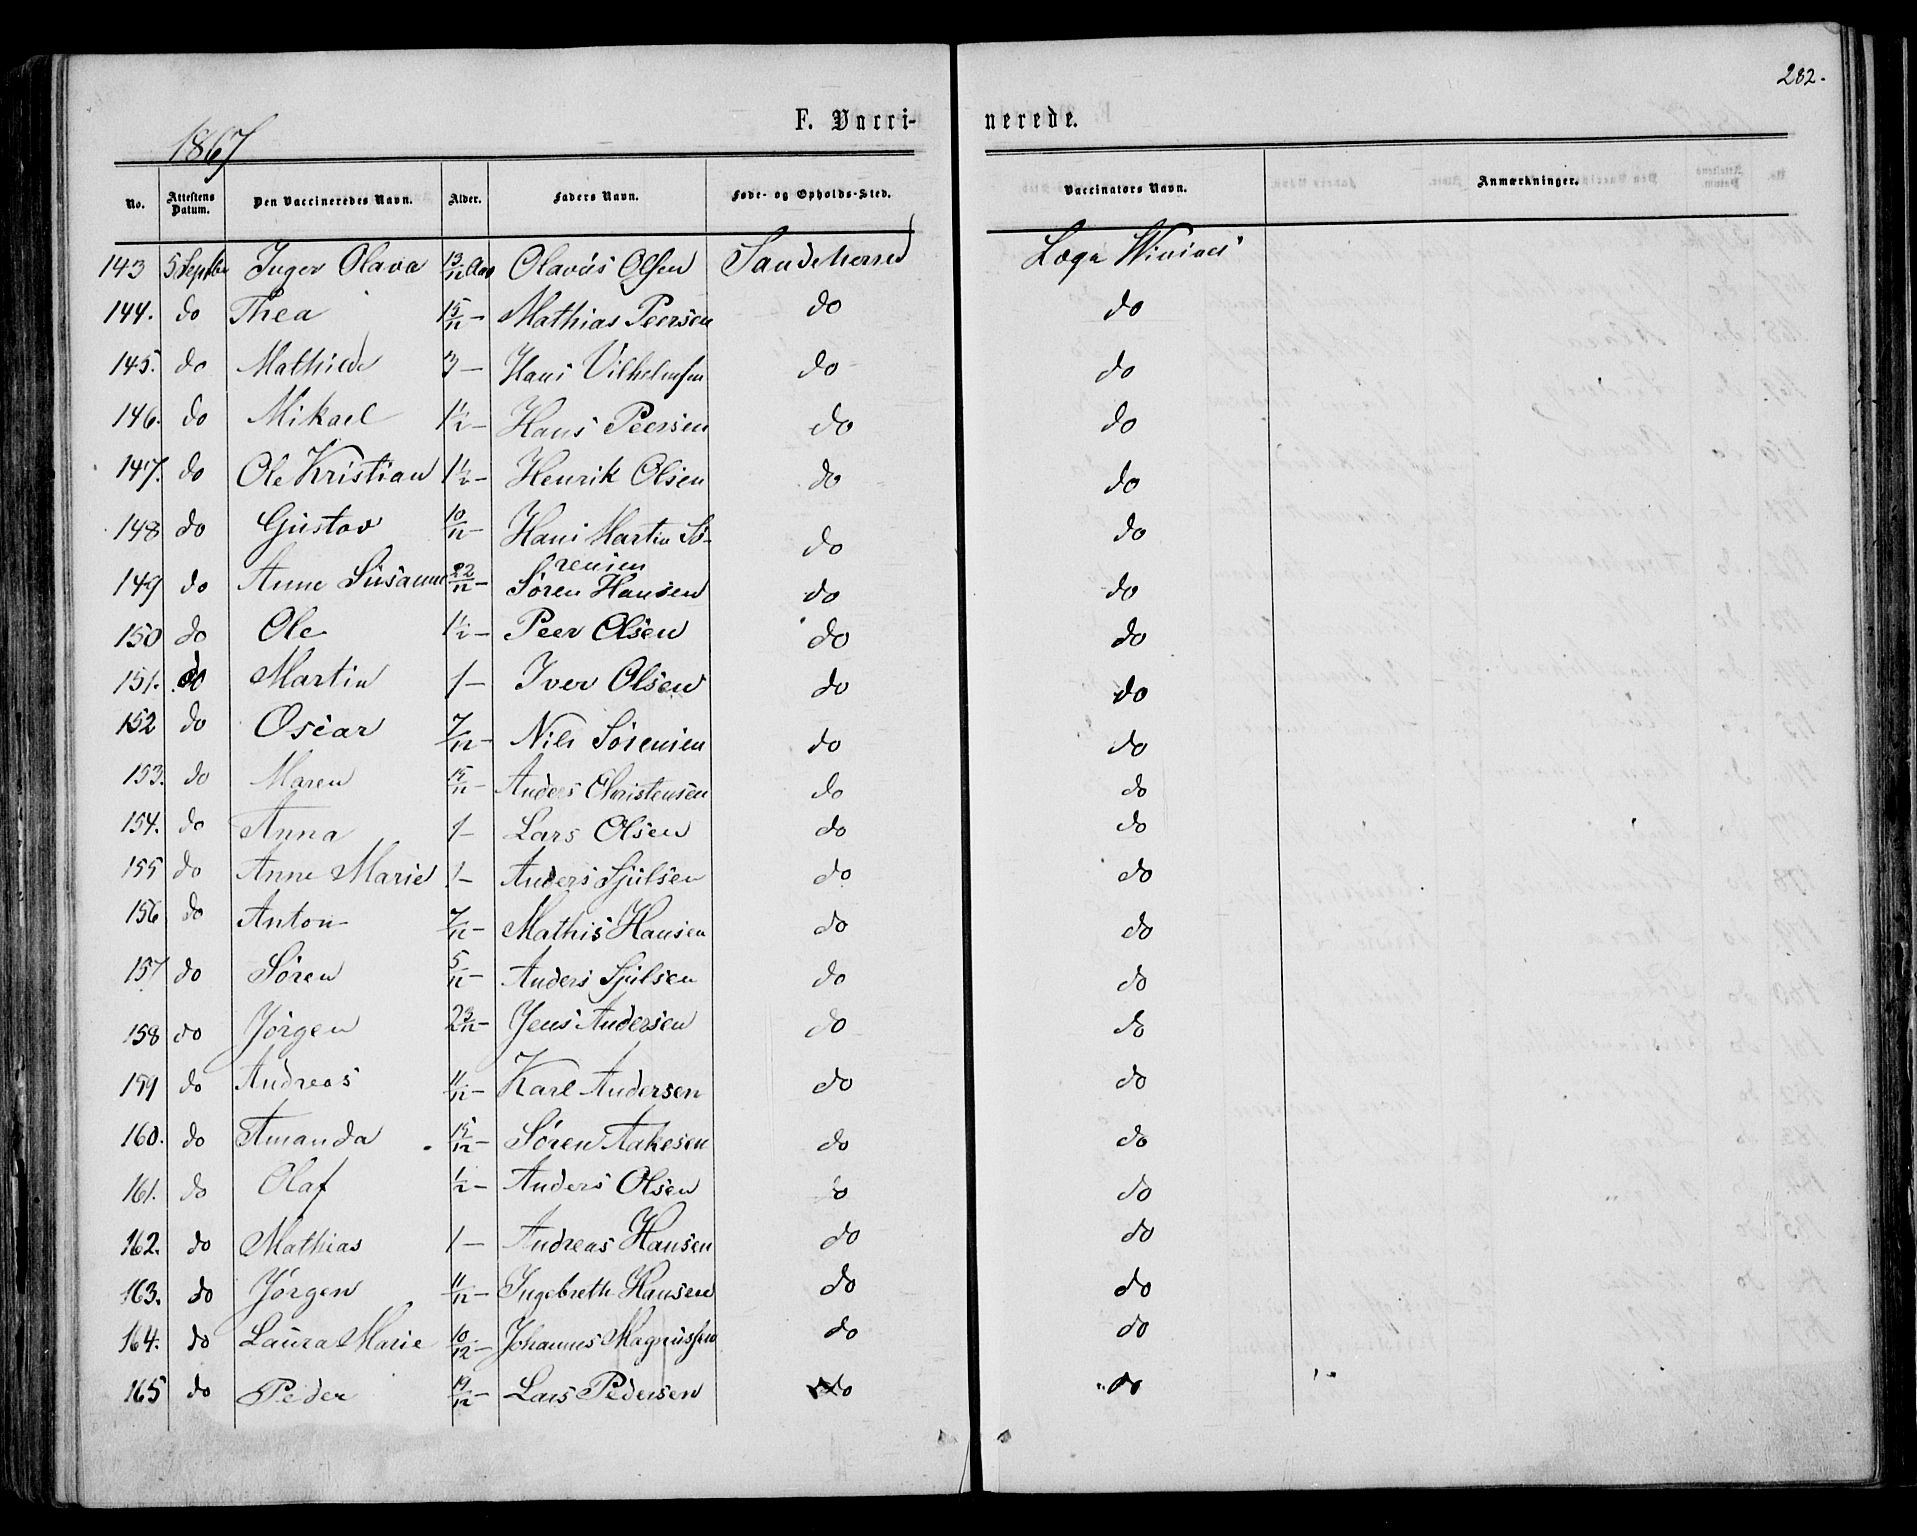 282.
F. Vacci-nerede.
1867
No. Attestens Datum. Den Vaccineredes Navn. Alder. Faders Navn. Føde- og Opholds-Sted. Vaccinators Navn. Anmærkninger.
143 5 Septbr Inger Olava 13/12 Aar Olaus Olsen Sandeherred Læge
144. do Thea 15/12 – Mathias Peersen do do
145. do Mathilde 3 – Hans Vilhelmsen do do
146. do Mikael 1 1/2 – Hans Peersen do do
147. do Ole Kristian 1 1/2 – Henrik Olsen do do
148 do Gustav 10/12 – Hans Martin Sø-rensen do do
149 do Anne Susanne 22/12 – Søren Hansen do do
150 do Ole 1 1/2 – Peer Olsen do do
151. do Martin 1 – Iver Olsen do do
152 do Oscar 7/12 – Nils Sørensen do do
153. do Maren 15/12 – Anders Christensen do do
154. do Anna 1 – Lars Olsen do do
155 do Anne Marie 1 – Anders Sjulsen do do
156 do Anton 7/12 – Mathis Hansen do do
157 do Søren 5/12 – Anders Sjulsen do do
158 do Jørgen 23/12 – Jens Andersen do do
159 do Andreas 11/12 – Karl Andersen do do
160. do Amanda 15/12 – Søren Aakesen do do
161. do Olaf 1/2 – Anders Olsen do do
162. do Mathias 1 – Andreas Hansen do do
163. do Jørgen 11/12 – Ingebreth Hansen do do
164. do Laura Marie 10/12 – Johannes Magnussen do do
165 do Peder 19/12 – Lars Pedersen do do